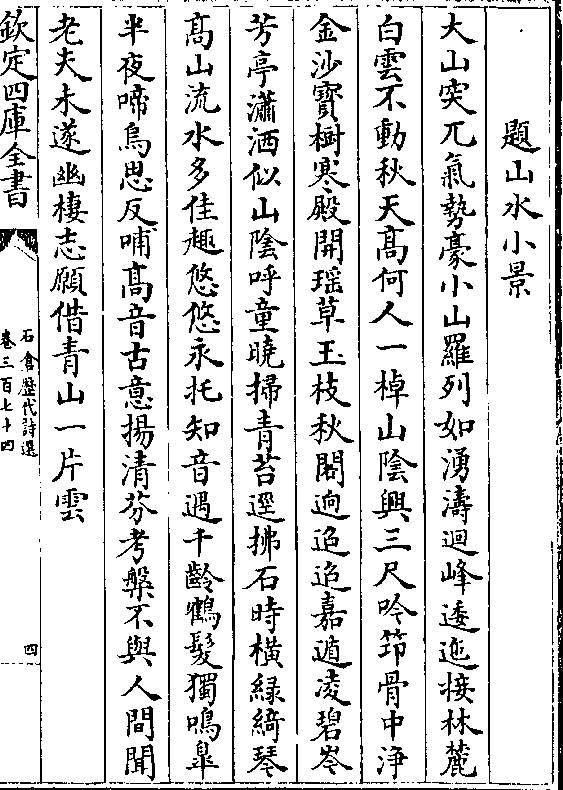 題山水小景
大山突兀氣勢豪小山羅列如湧濤迴峰逶迤接林麓
白雲不動秋天髙何人一棹山陰興三尺吟笻骨中淨
金沙寶樹寒殿開瑶草玉枝秋閣逈迢迢嘉遁凌碧岑
芳亭瀟洒似山陰呼童曉掃青苔逕拂石時横緑綺琴
髙山流水多佳趣悠悠永托知音遇千齡鶴髮獨鳴臯
半夜啼烏思反哺髙音古意揚清芬考槃不與人間聞
老夫未遂幽棲志願借青山一片雲
欽定四庫全書
石倉歷代詩選
卷三百七十四
四